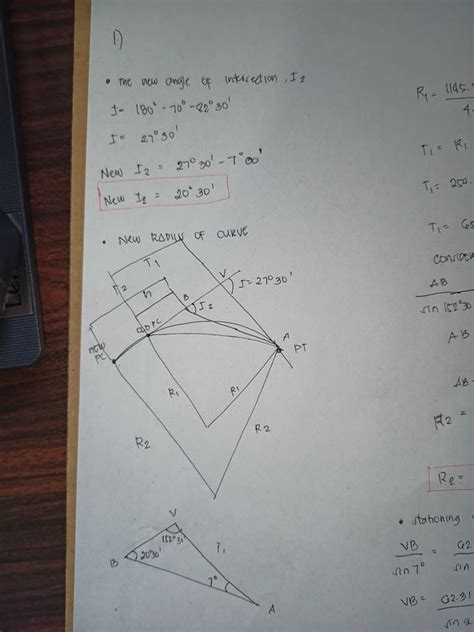 1)
• The new angle of intersection, I2
I = 180° - 70° - 82°30'
I = 27°30'
New I2 = 27°30' - 7°00'
New I2 = 20°30'
• NEW RADIUS OF CURVE
T1
T2
h
V
I = 27°30'
B
I2
old PC
new PC
A
PT
R1
R1
R2
R2
V
152°30'
B
20°30'
T1
7°
A
R1 = 1145.
4.
T1 = R1
T1 = 254.
T1 = 62
Consider
AB
sin 152°30'
AB
AB
R2 =
R2 =
• stationing
VB = 62
sin 7° sin
VB = 62.31
sin 2